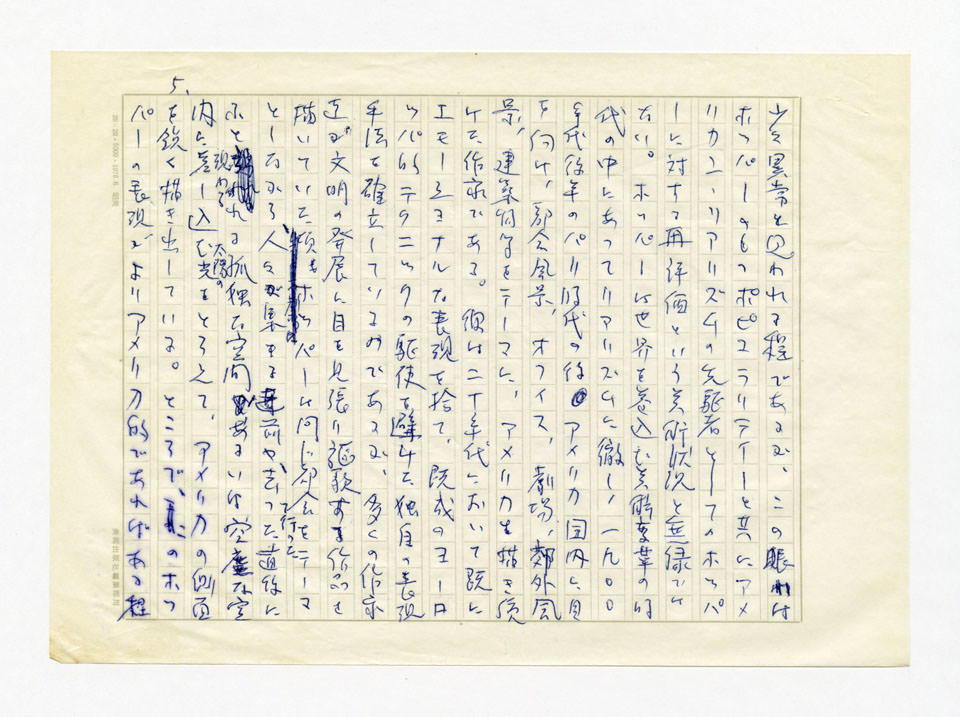 5.
少々異常と思われる程であるが、この賑わは
ホッパーのもつポピュラリティーと共にアメ
リカン・リアリズムの先駆者としてのホッパ
ーに対する再評価という美術状況と無縁では
ない。ホッパーは世界を巻込む美術変革の時
代の中にあってリアリズムに徹し、一九〇〇
年代後半のパリ時代の後アメリカ国内に目
を向け、都会風景、オフィス、劇場、郊外風
景、建築物等をテーマに、アメリカを描き続
けた作家である。彼は二十年代において既に
エモーショナルな表現を捨て、既成のヨーロ
ッパ的テクニックの駆使を避けた独自の表現
手法を確立しているのであるが、多くの作家
達が文明の発展に目を見張り謳歌する作品を
描いていた頃もホッパーは同じ都会をテーマ
としながら人々が集まる直前や去って行った直後に
ふと現われる孤独な空間あるいは空虚な室
内に差し込む太陽の光をとらえて、アメリカの側面
を鋭く描き出している。ところで、このホッ
パーの表現がよりアメリカ的であればある程
20×20・5000・1978.6